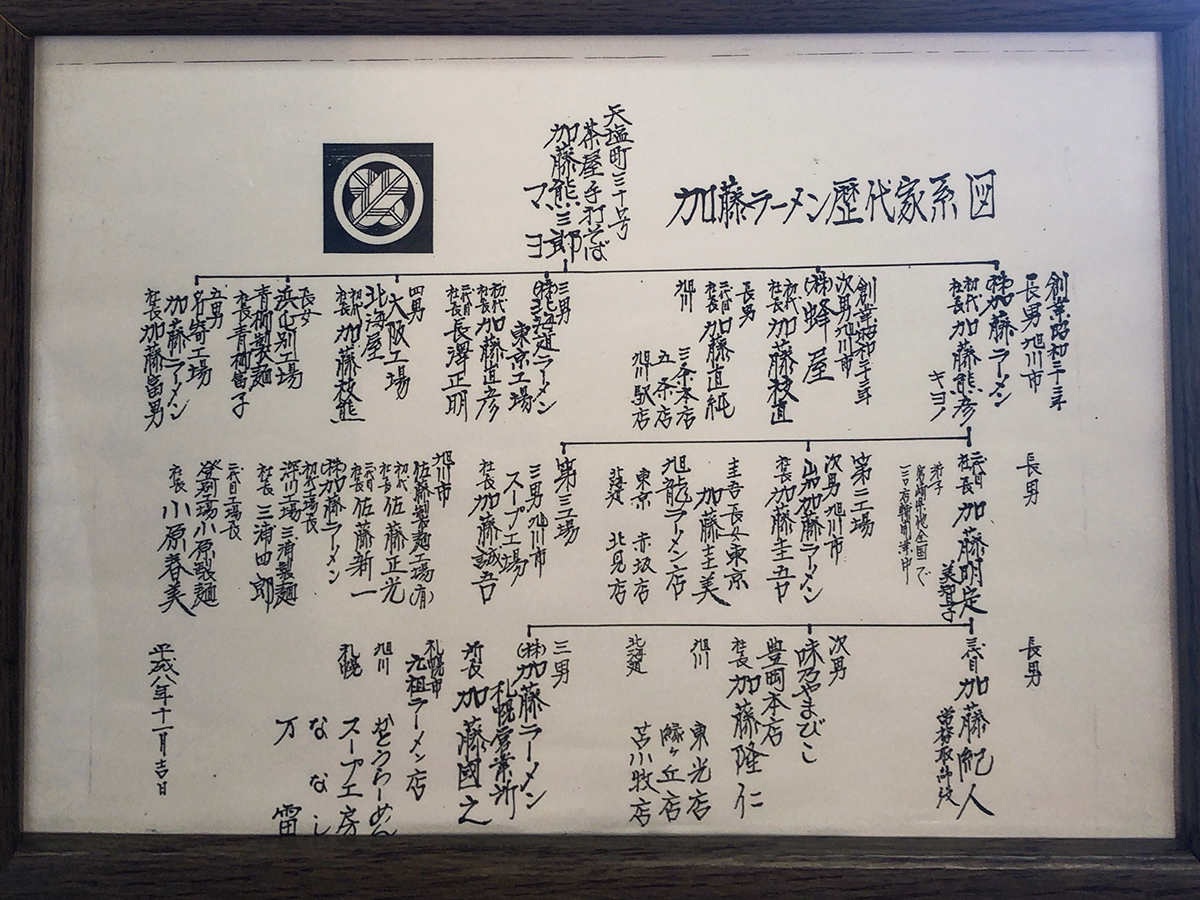 加藤ラーメン歴代家系図
天塩町三十号
茶屋手打そば
加藤熊三郎
マヨ
創業昭和二十二年
長男旭川市
(株)加藤ラーメン
初代社長加藤熊彦
キヨノ
創業昭和二十二年
次男旭川市
(株)蜂屋
初代社長加藤枝直
長男
二代目社長加藤直純
旭川
三条本店
五条店
旭川駅店
三男
(株)北海道ラーメン
東京工場
初代社長加藤直彦
二代目社長長澤正明
四男
大阪工場
北海屋
初代社長加藤枝熊
長女
浜頓別工場
青柳製麺
社長青柳富子
五男
名寄工場
加藤ラーメン
社長加藤富男
長男
二代目社長加藤明定
美智子
第二工場
次男旭川市
山加加藤ラーメン
社長加藤圭吾
圭吾長女東京
加藤圭美
旭龍ラーメン店
東京 赤坂店
北海道 北見店
第三工場
三男旭川市
スープ工場
社長加藤誠吾
旭川市
佐藤製麺工場(有)
初代社長佐藤正光
二代目社長佐藤新一
(株)加藤ラーメン
初代工場長
深川工場三浦製麺
社長三浦四郎
二代目工場長
登別工場小原製麺
社長小原春美
長男
三代目加藤紀人
常務取締役
次男
味乃やまびこ
豊岡本店
社長加藤隆仁
旭川 東光店
緑ヶ丘店
北海道 苫小牧店
三男
(株)加藤ラーメン
札幌営業所
所長加藤國之
札幌市
元祖ラーメン店
旭川
札幌 スープ工房
ななし
万雷
平成八年十一月吉日